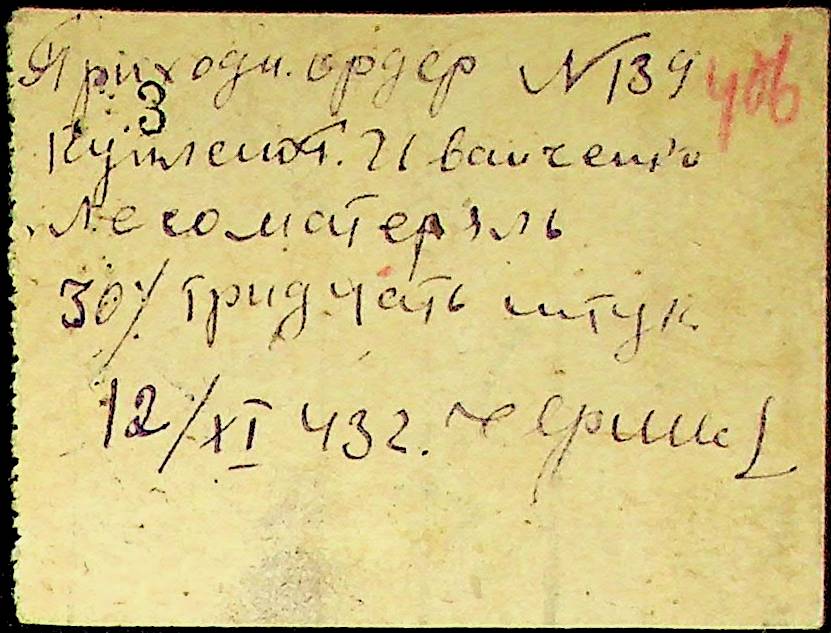 Приходн. ордер N 139 406
3
Куплено от. Иванченко
Лесоматерял
30/ тридцать штук
12/XI 43 г.